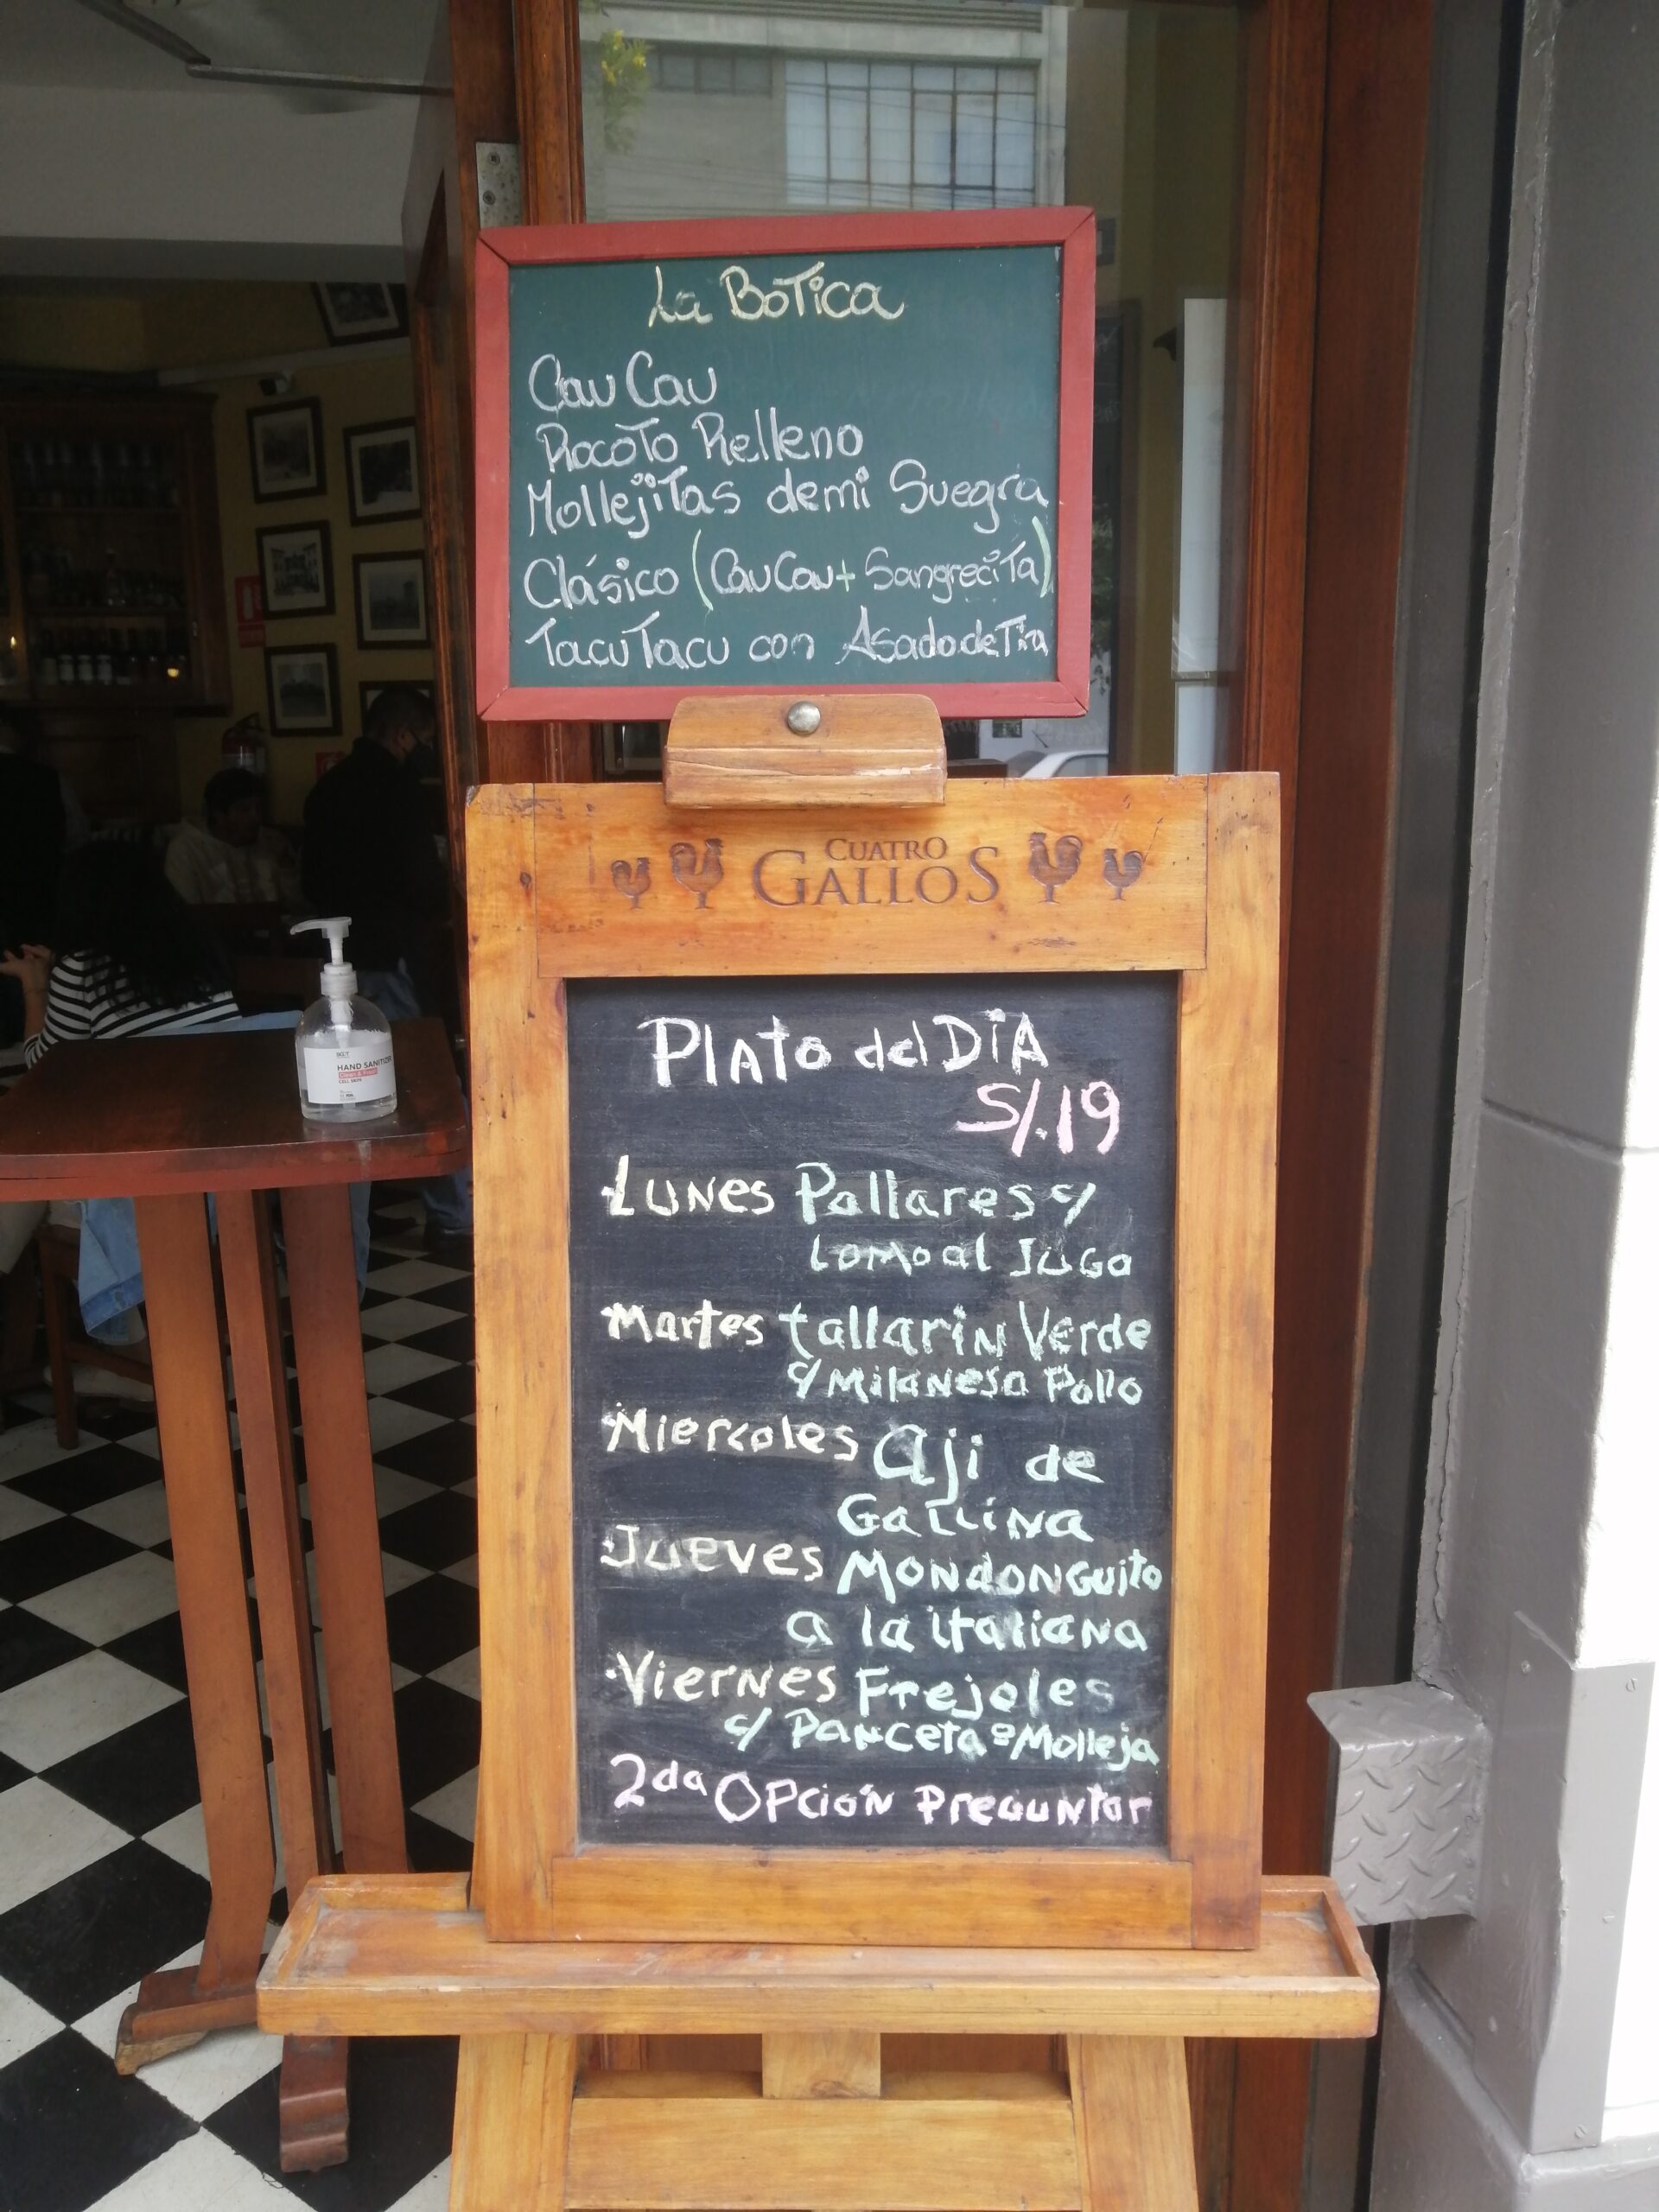 La Botica
Cau Cau
Rocoto Relleno
Mollejitas de mi Suegra
Clásico (Cau Cau + Sangrecita)
Tacu Tacu con Asado de Tira
CUATRO
GALLOS
Plato del DíA
S/.19
Lunes Pallares c/
Lomo al Jugo
Martes tallarin Verde
c/ Milanesa Pollo
Miercoles Aji de
Gallina
Jueves Mondonguito
a la italiana
Viernes Frejoles
c/ Panceta o Molleja
2da Opción Preguntar
HAND SANITIZER